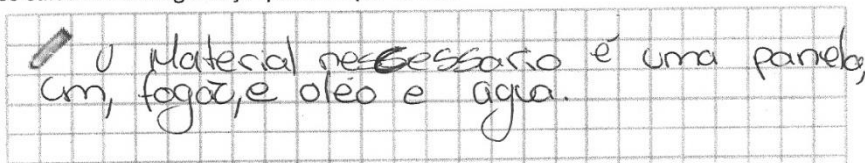 O Material necessario é uma panela,
um, fogão, e oléo e agua.